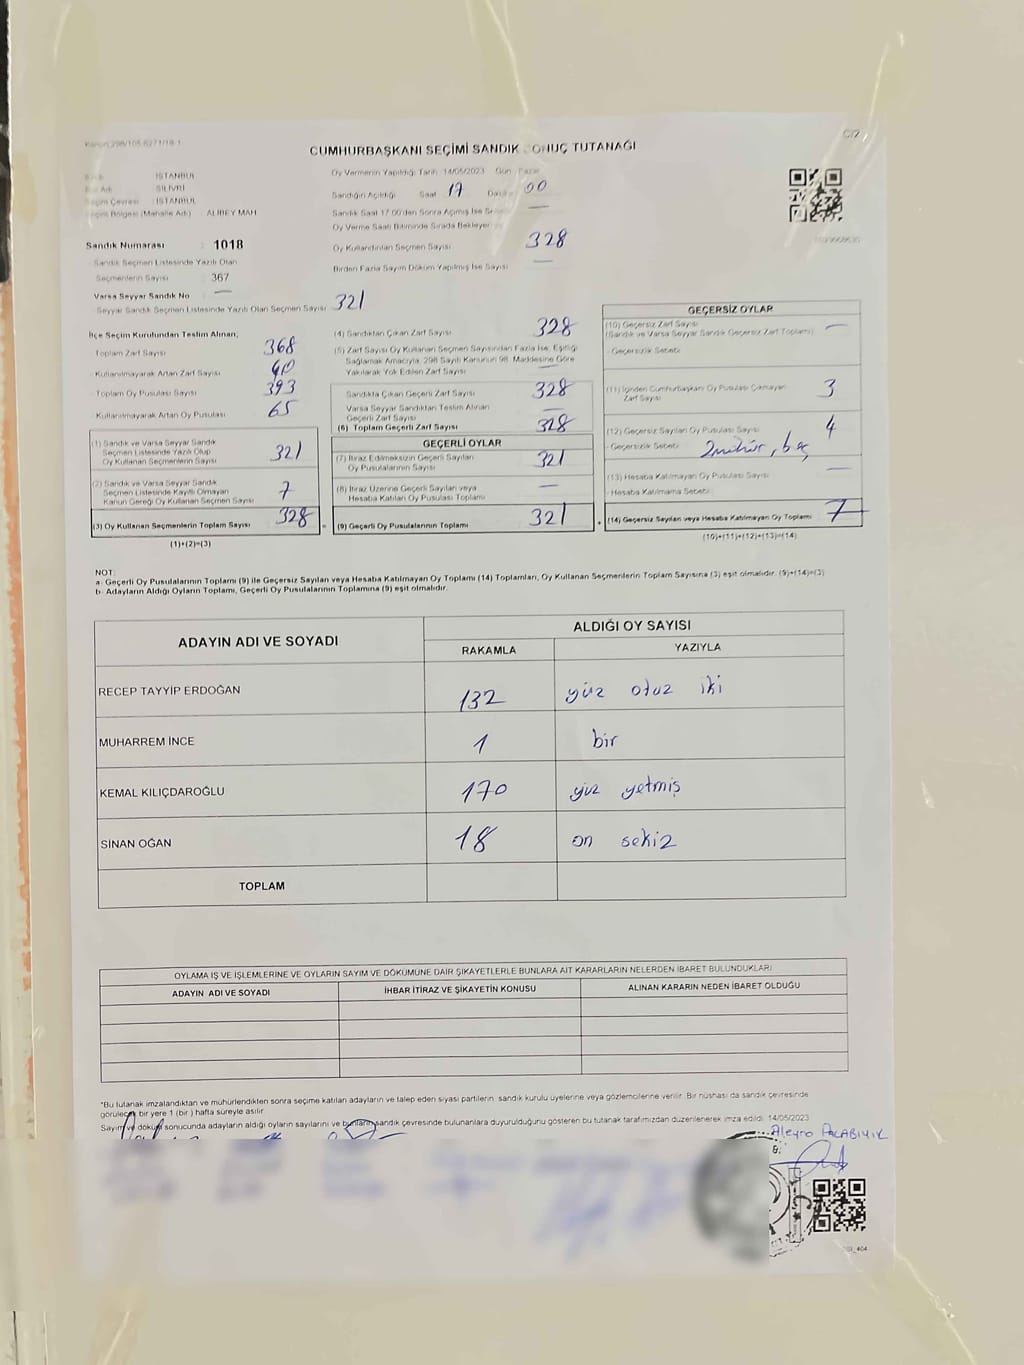 Kanun 298/105-6271/18-1
C72
CUMHURBAŞKANI SEÇİMİ SANDIK SONUÇ TUTANAĞI
İSTANBUL
SİLİVRİ
Seçim Çevresi : İSTANBUL
Seçim Bölgesi (Mahalle Adı) ALİBEY MAH
Sandık Numarası : 1018
Sandık Seçmen Listesinde Yazılı Olan
Seçmenlerin Sayısı 367
Varsa Seyyar Sandık No —
Seyyar Sandık Seçmen Listesinde Yazılı Olan Seçmen Sayısı 321
Oy Vermenin Yapıldığı Tarih 14/05/2023 Gün : Pazar
Sandığın Açıldığı Saat 17 Dakika 00
Sandık Saat 17.00'den Sonra Açılmış İse —
Oy Verme Saati Bitiminde Sırada Bekleyen
Oy Kullandırılan Seçmen Sayısı 328
Birden Fazla Sayım Döküm Yapılmış İse Sayısı —
İlçe Seçim Kurulundan Teslim Alınan;
Toplam Zarf Sayısı 368
- Kullanılmayarak Artan Zarf Sayısı 40
Toplam Oy Pusulası Sayısı 393
- Kullanılmayarak Artan Oy Pusulası 65
(1) Sandık ve Varsa Seyyar Sandık
Seçmen Listesinde Yazılı Olup
Oy Kullanan Seçmenlerin Sayısı 321
(2) Sandık ve Varsa Seyyar Sandık
Seçmen Listesinde Kayıtlı Olmayan
Kanun Gereği Oy Kullanan Seçmen Sayısı 7
(3) Oy Kullanan Seçmenlerin Toplam Sayısı 328 =
(1)+(2)=(3)
(4) Sandıktan Çıkan Zarf Sayısı 328
(5) Zarf Sayısı Oy Kullanan Seçmen Sayısından Fazla İse, Eşitliği
Sağlamak Amacıyla, 298 Sayılı Kanunun 98. Maddesine Göre
Yakılarak Yok Edilen Zarf Sayısı —
Sandıkta Çıkan Geçerli Zarf Sayısı 328
Varsa Seyyar Sandıktan Teslim Alınan
Geçerli Zarf Sayısı —
(6) Toplam Geçerli Zarf Sayısı 328
GEÇERLİ OYLAR
(7) İtiraz Edilmeksizin Geçerli Sayılan
Oy Pusulalarının Sayısı 321
(8) İtiraz Üzerine Geçerli Sayılan veya
Hesaba Katılan Oy Pusulası Toplamı —
(9) Geçerli Oy Pusulalarının Toplamı 321 +
GEÇERSİZ OYLAR
(10) Geçersiz Zarf Sayısı —
(Sandık ve Varsa Seyyar Sandık Geçersiz Zarf Toplamı)
- Geçersizlik Sebebi
(11) İçinden Cumhurbaşkanı Oy Pusulası Çıkmayan
Zarf Sayısı 3
(12) Geçersiz Sayılan Oy Pusulası Sayısı 4
- Geçersizlik Sebebi 2 mühür, boş
(13) Hesaba Katılmayan Oy Pusulası Sayısı —
- Hesaba Katılmama Sebebi
(14) Geçersiz Sayılan veya Hesaba Katılmayan Oy Toplamı 7
(10)+(11)+(12)+(13)=(14)
NOT:
a- Geçerli Oy Pusulalarının Toplamı (9) ile Geçersiz Sayılan veya Hesaba Katılmayan Oy Toplamı (14) Toplamları, Oy Kullanan Seçmenlerin Toplam Sayısına (3) eşit olmalıdır. (9)+(14)=(3)
b- Adayların Aldığı Oyların Toplamı, Geçerli Oy Pusulalarının Toplamına (9) eşit olmalıdır.
ADAYIN ADI VE SOYADI
ALDIĞI OY SAYISI
RAKAMLA YAZIYLA
RECEP TAYYİP ERDOĞAN 132 yüz otuz iki
MUHARREM İNCE 1 bir
KEMAL KILIÇDAROĞLU 170 yüz yetmiş
SİNAN OĞAN 18 on sekiz
TOPLAM
OYLAMA İŞ VE İŞLEMLERİNE VE OYLARIN SAYIM VE DÖKÜMÜNE DAİR ŞİKAYETLERLE BUNLARA AİT KARARLARIN NELERDEN İBARET BULUNDUKLARI
ADAYIN ADI VE SOYADI İHBAR İTİRAZ VE ŞİKAYETİN KONUSU ALINAN KARARIN NEDEN İBARET OLDUĞU
*Bu tutanak imzalandıktan ve mühürlendikten sonra seçime katılan adayların ve talep eden siyasi partilerin, sandık kurulu üyelerine veya gözlemcilerine verilir. Bir nüshası da sandık çevresinde
görülecek bir yere 1 (bir) hafta süreyle asılır.
Sayım ve döküm sonucunda adayların aldığı oyların sayılarını ve bunların sandık çevresinde bulunanlara duyurulduğunu gösteren bu tutanak tarafımızdan düzenlenerek imza edildi. 14/05/2023
Aleyna PALABIYIK